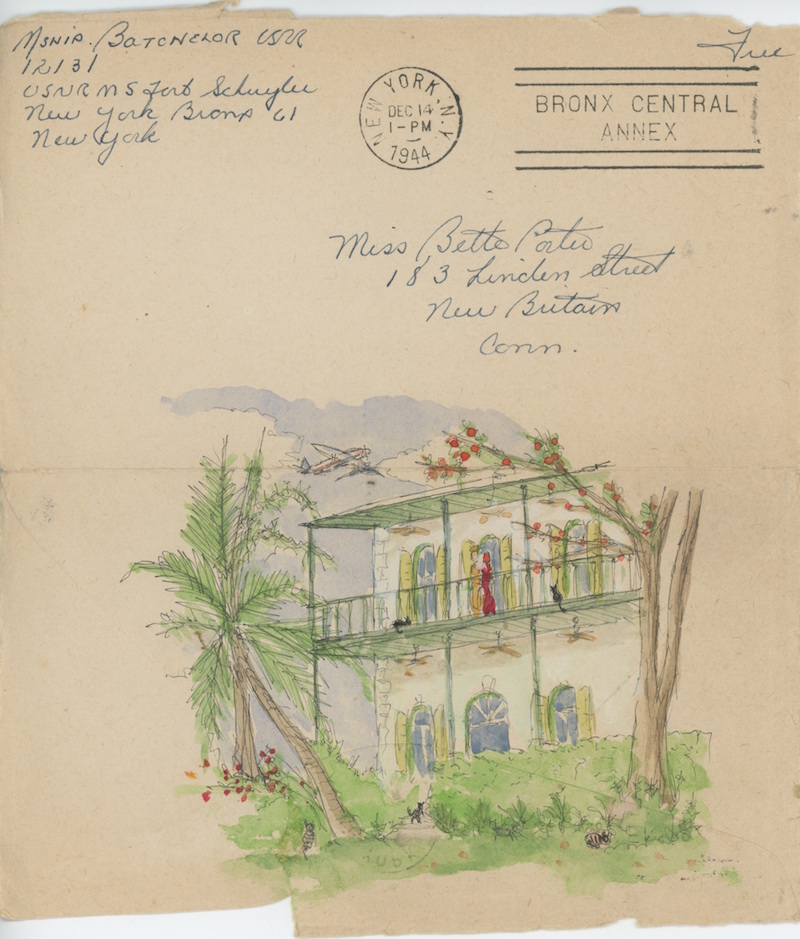 Msnip. Batchelor USNR
12131
USNR MS Fort Schuyler
New York Bronx 61
New York
Free
NEW YORK, N.Y.
DEC 14
1-PM
1944
BRONX CENTRAL
ANNEX
Miss Bette Porter
183 Linden Street
New Britain
Conn.